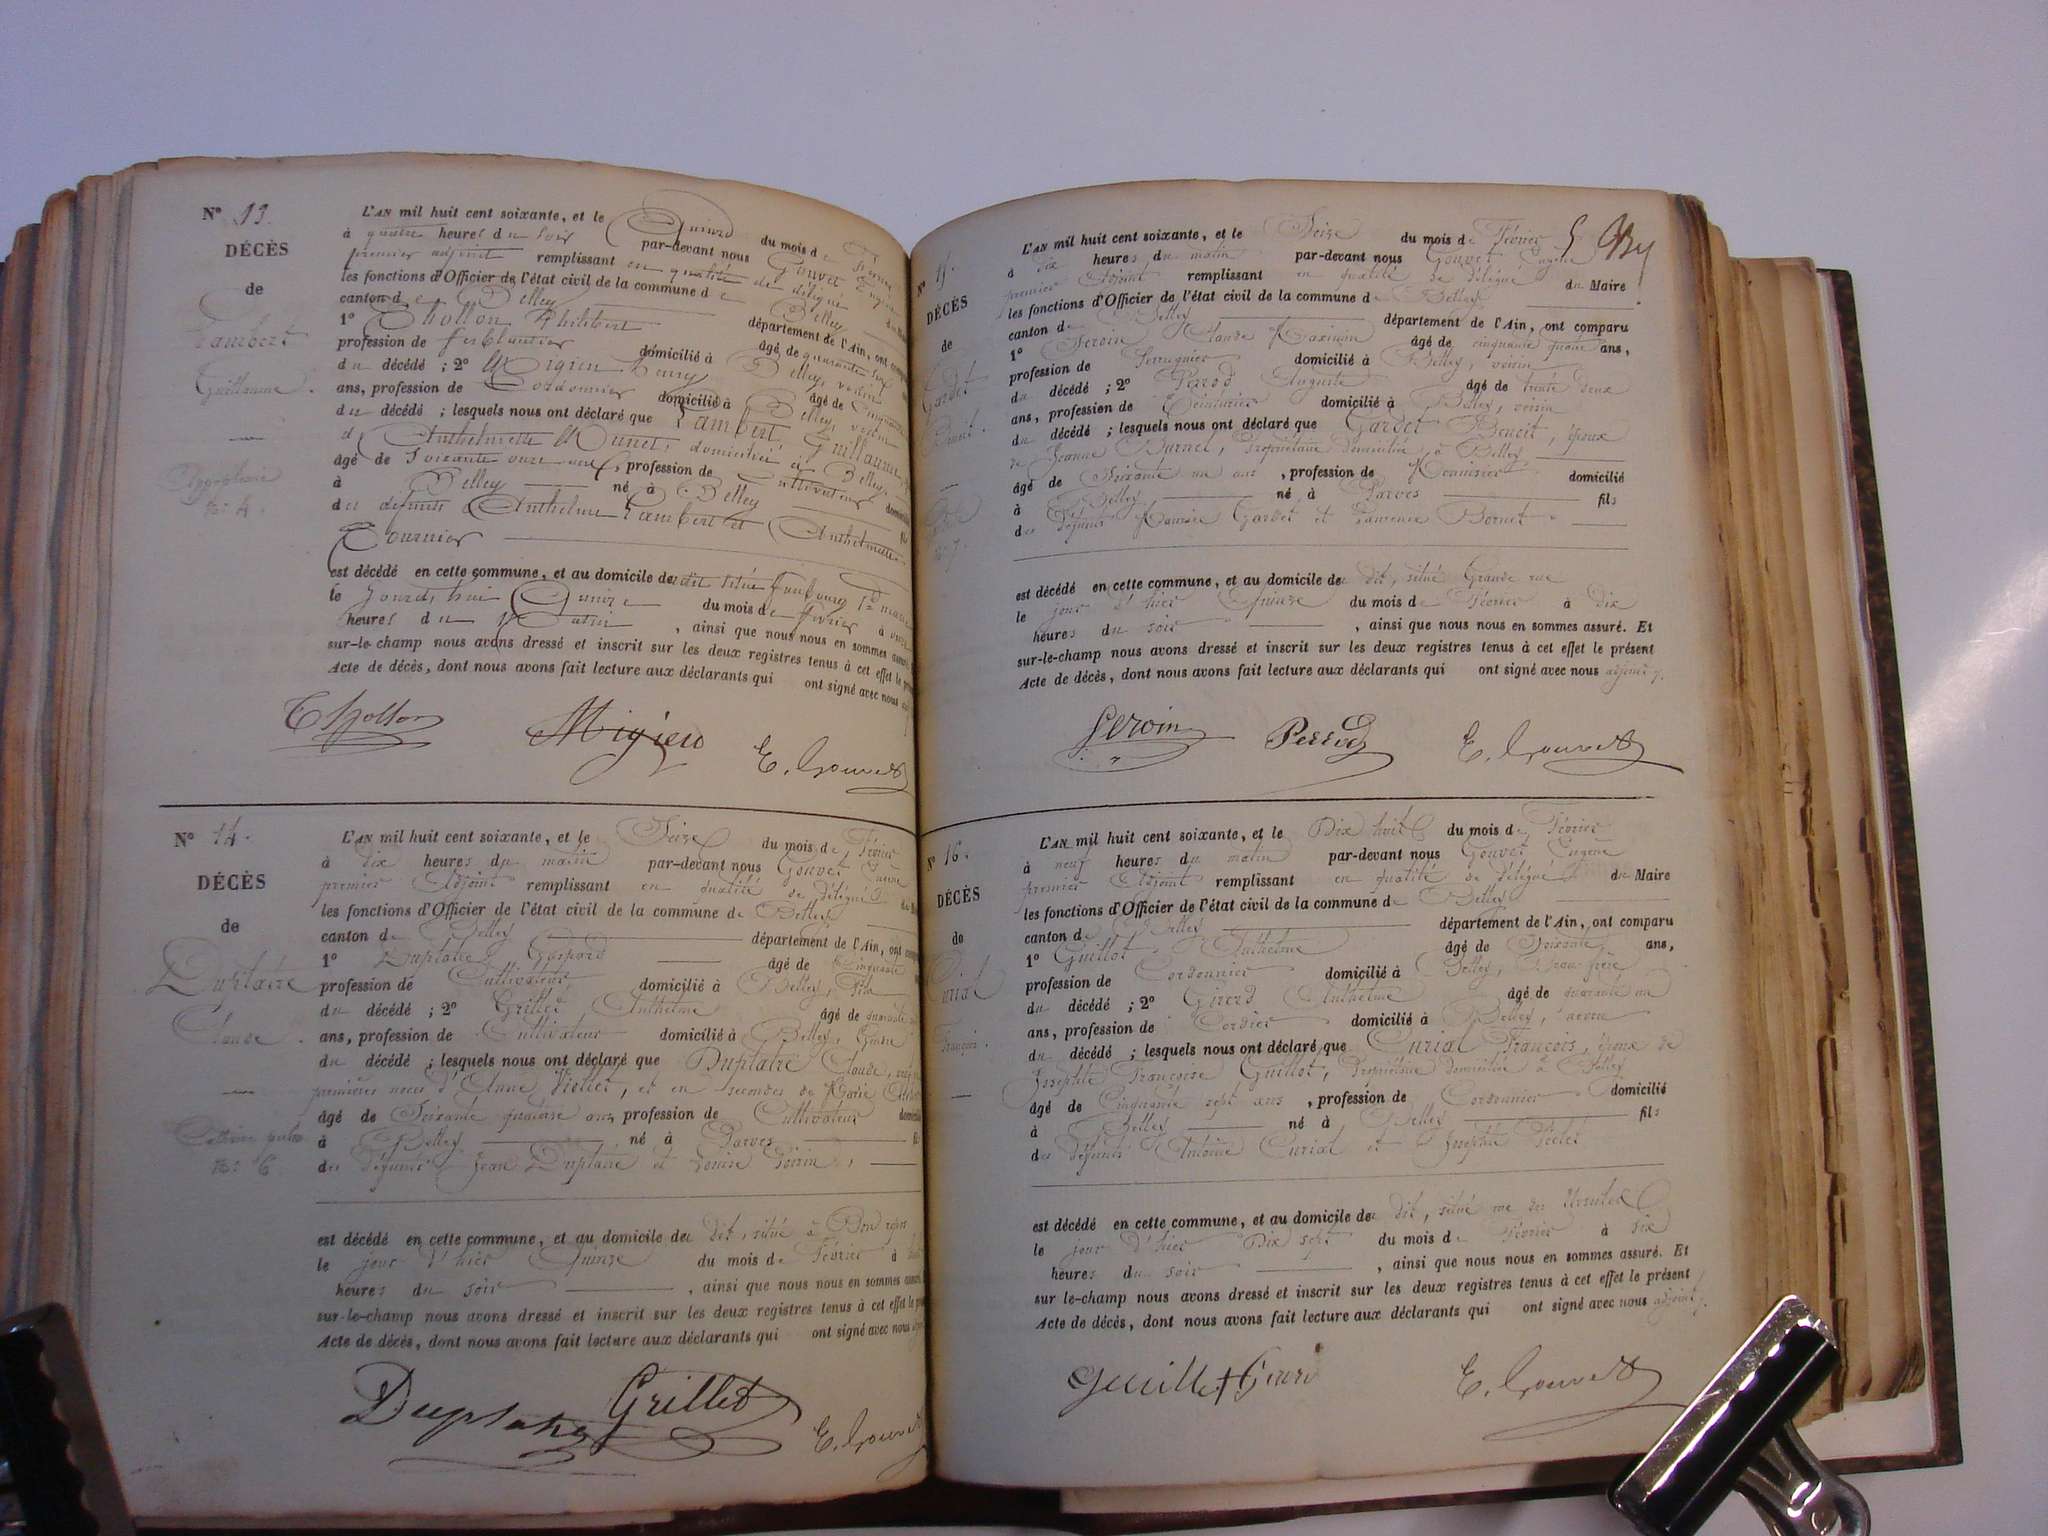 N° 13.
DÉCÈS
de
Lambert
Guillaume.
Apoplexie
N° 4.
L'AN mil huit cent soixante, et le Quinze du mois de Février
à quatre heures du soir par-devant nous Gouvet Eugène
premier adjoint remplissant en qualité de délégué
les fonctions d'Officier de l'état civil de la commune de Belley
canton de Belley département de l'Ain, ont
1° Chollon Philibert âgé de quarante six
profession de ferblantier domicilié à Belley, voisin
du décédé ; 2° Migieu Henry âgé de
ans, profession de Cordonnier domicilié à Belley, voisin
du décédé ; lesquels nous ont déclaré que Lambert, Guillaume,
d'Anthelmette domicilié à Belley,
âgé de soixante onze ans, profession de Cultivateur
à Belley né à Belley
des défunts Anthelme Lambert et Anthelmette
Fournier
est décédé en cette commune, et au domicile du dit situé faubourg St
le jourd'hui Quinze du mois de février à
heures du Matin, ainsi que nous nous en sommes
sur-le-champ nous avons dressé et inscrit sur les deux registres tenus à cet effet le
Acte de décès, dont nous avons fait lecture aux déclarants qui ont signé avec nous
Chollon Migieu E. Gouvet
N° 14.
DÉCÈS
de
Duplatre
Claude.
N° 6
L'AN mil huit cent soixante, et le Seize du mois de Février
à dix heures du matin par-devant nous Gouvet Eugène
premier Adjoint remplissant en qualité de délégué
les fonctions d'Officier de l'état civil de la commune de Belley
canton de Belley département de l'Ain, ont
1° Duplatre Gaspard âgé de Cinquante
profession de Cultivateur domicilié à Belley, fils
du décédé ; 2° Grillet Anthelme âgé de quarante
ans, profession de Cultivateur domicilié à Belley, Gendre
du décédé ; lesquels nous ont déclaré que Duplatre Claude,
premières noces d'Anne et en secondes de Marie
âgé de Soixante quatorze ans profession de Cultivateur
à Belley né à Parves
des défunts Jean Duplatre et Louise
est décédé en cette commune, et au domicile du dit, situé à Bon repos
le jour d'hier Quinze du mois de Février à
heures du soir, ainsi que nous nous en sommes
sur-le-champ nous avons dressé et inscrit sur les deux registres tenus à cet effet le
Acte de décès, dont nous avons fait lecture aux déclarants qui ont signé avec nous
Duplatre Grillet E. Gouvet
N° 15.
DÉCÈS
de
Gardet
Benoit.
N° 7.
L'AN mil huit cent soixante, et le Seize du mois de Février
à dix heures du matin par-devant nous Gouvet Eugène
premier Adjoint remplissant en qualité de délégué du Maire
les fonctions d'Officier de l'état civil de la commune de Belley
canton de Belley département de l'Ain, ont comparu
1° Seroin Claude Maximin âgé de cinquante quatre ans,
profession de Serrurier domicilié à Belley, voisin
du décédé ; 2° Perrod Auguste âgé de trente deux
ans, profession de Teinturier domicilié à Belley, voisin
du décédé ; lesquels nous ont déclaré que Gardet Benoit, époux
de Jeanne Burnet, Propriétaire domiciliée à Belley
âgé de Soixante un ans, profession de Menuisier domicilié
à Belley né à Parves fils
des défunts Maurice Gardet et Laurence Bornet
est décédé en cette commune, et au domicile du dit, situé Grande rue
le jour d'hier Quinze du mois de Février à dix
heures du soir, ainsi que nous nous en sommes assuré. Et
sur-le-champ nous avons dressé et inscrit sur les deux registres tenus à cet effet le présent
Acte de décès, dont nous avons fait lecture aux déclarants qui ont signé avec nous adjoint
Seroin Perrod E. Gouvet
N° 16.
DÉCÈS
de
Curial
François.
L'AN mil huit cent soixante, et le Dix huit du mois de Février
à neuf heures du matin par-devant nous Gouvet Eugène
premier Adjoint remplissant en qualité de délégué du Maire
les fonctions d'Officier de l'état civil de la commune de Belley
canton de Belley département de l'Ain, ont comparu
1° Guillot Anthelme âgé de Soixante ans,
profession de Cordonnier domicilié à Belley, Beau-frère
du décédé ; 2° Girerd Anthelme âgé de quarante un
ans, profession de Cordier domicilié à Belley, neveu
du décédé ; lesquels nous ont déclaré que Curial François, époux de
Josephte Françoise Guillot, Propriétaire domiciliée à Belley
âgé de Cinquante sept ans, profession de Cordonnier domicilié
à Belley né à Belley fils
des défunts Antoine Curial et Josephte
est décédé en cette commune, et au domicile du dit, situé rue des Ursules
le jour d'hier Dix sept du mois de Février à six
heures du soir, ainsi que nous nous en sommes assuré. Et
sur le-champ nous avons dressé et inscrit sur les deux registres tenus à cet effet le présent
Acte de décès, dont nous avons fait lecture aux déclarants qui ont signé avec nous adjoint
E. Gouvet